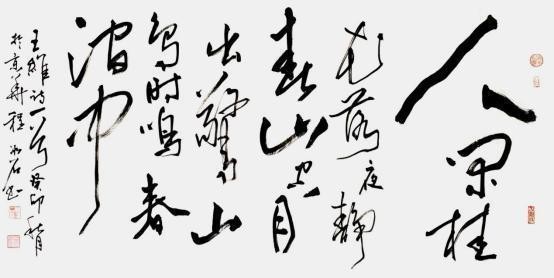 人闲桂
花落夜静
春山空月
出惊山
鸟时鸣春
涧中
王維诗一首癸卯秋月
於京華程